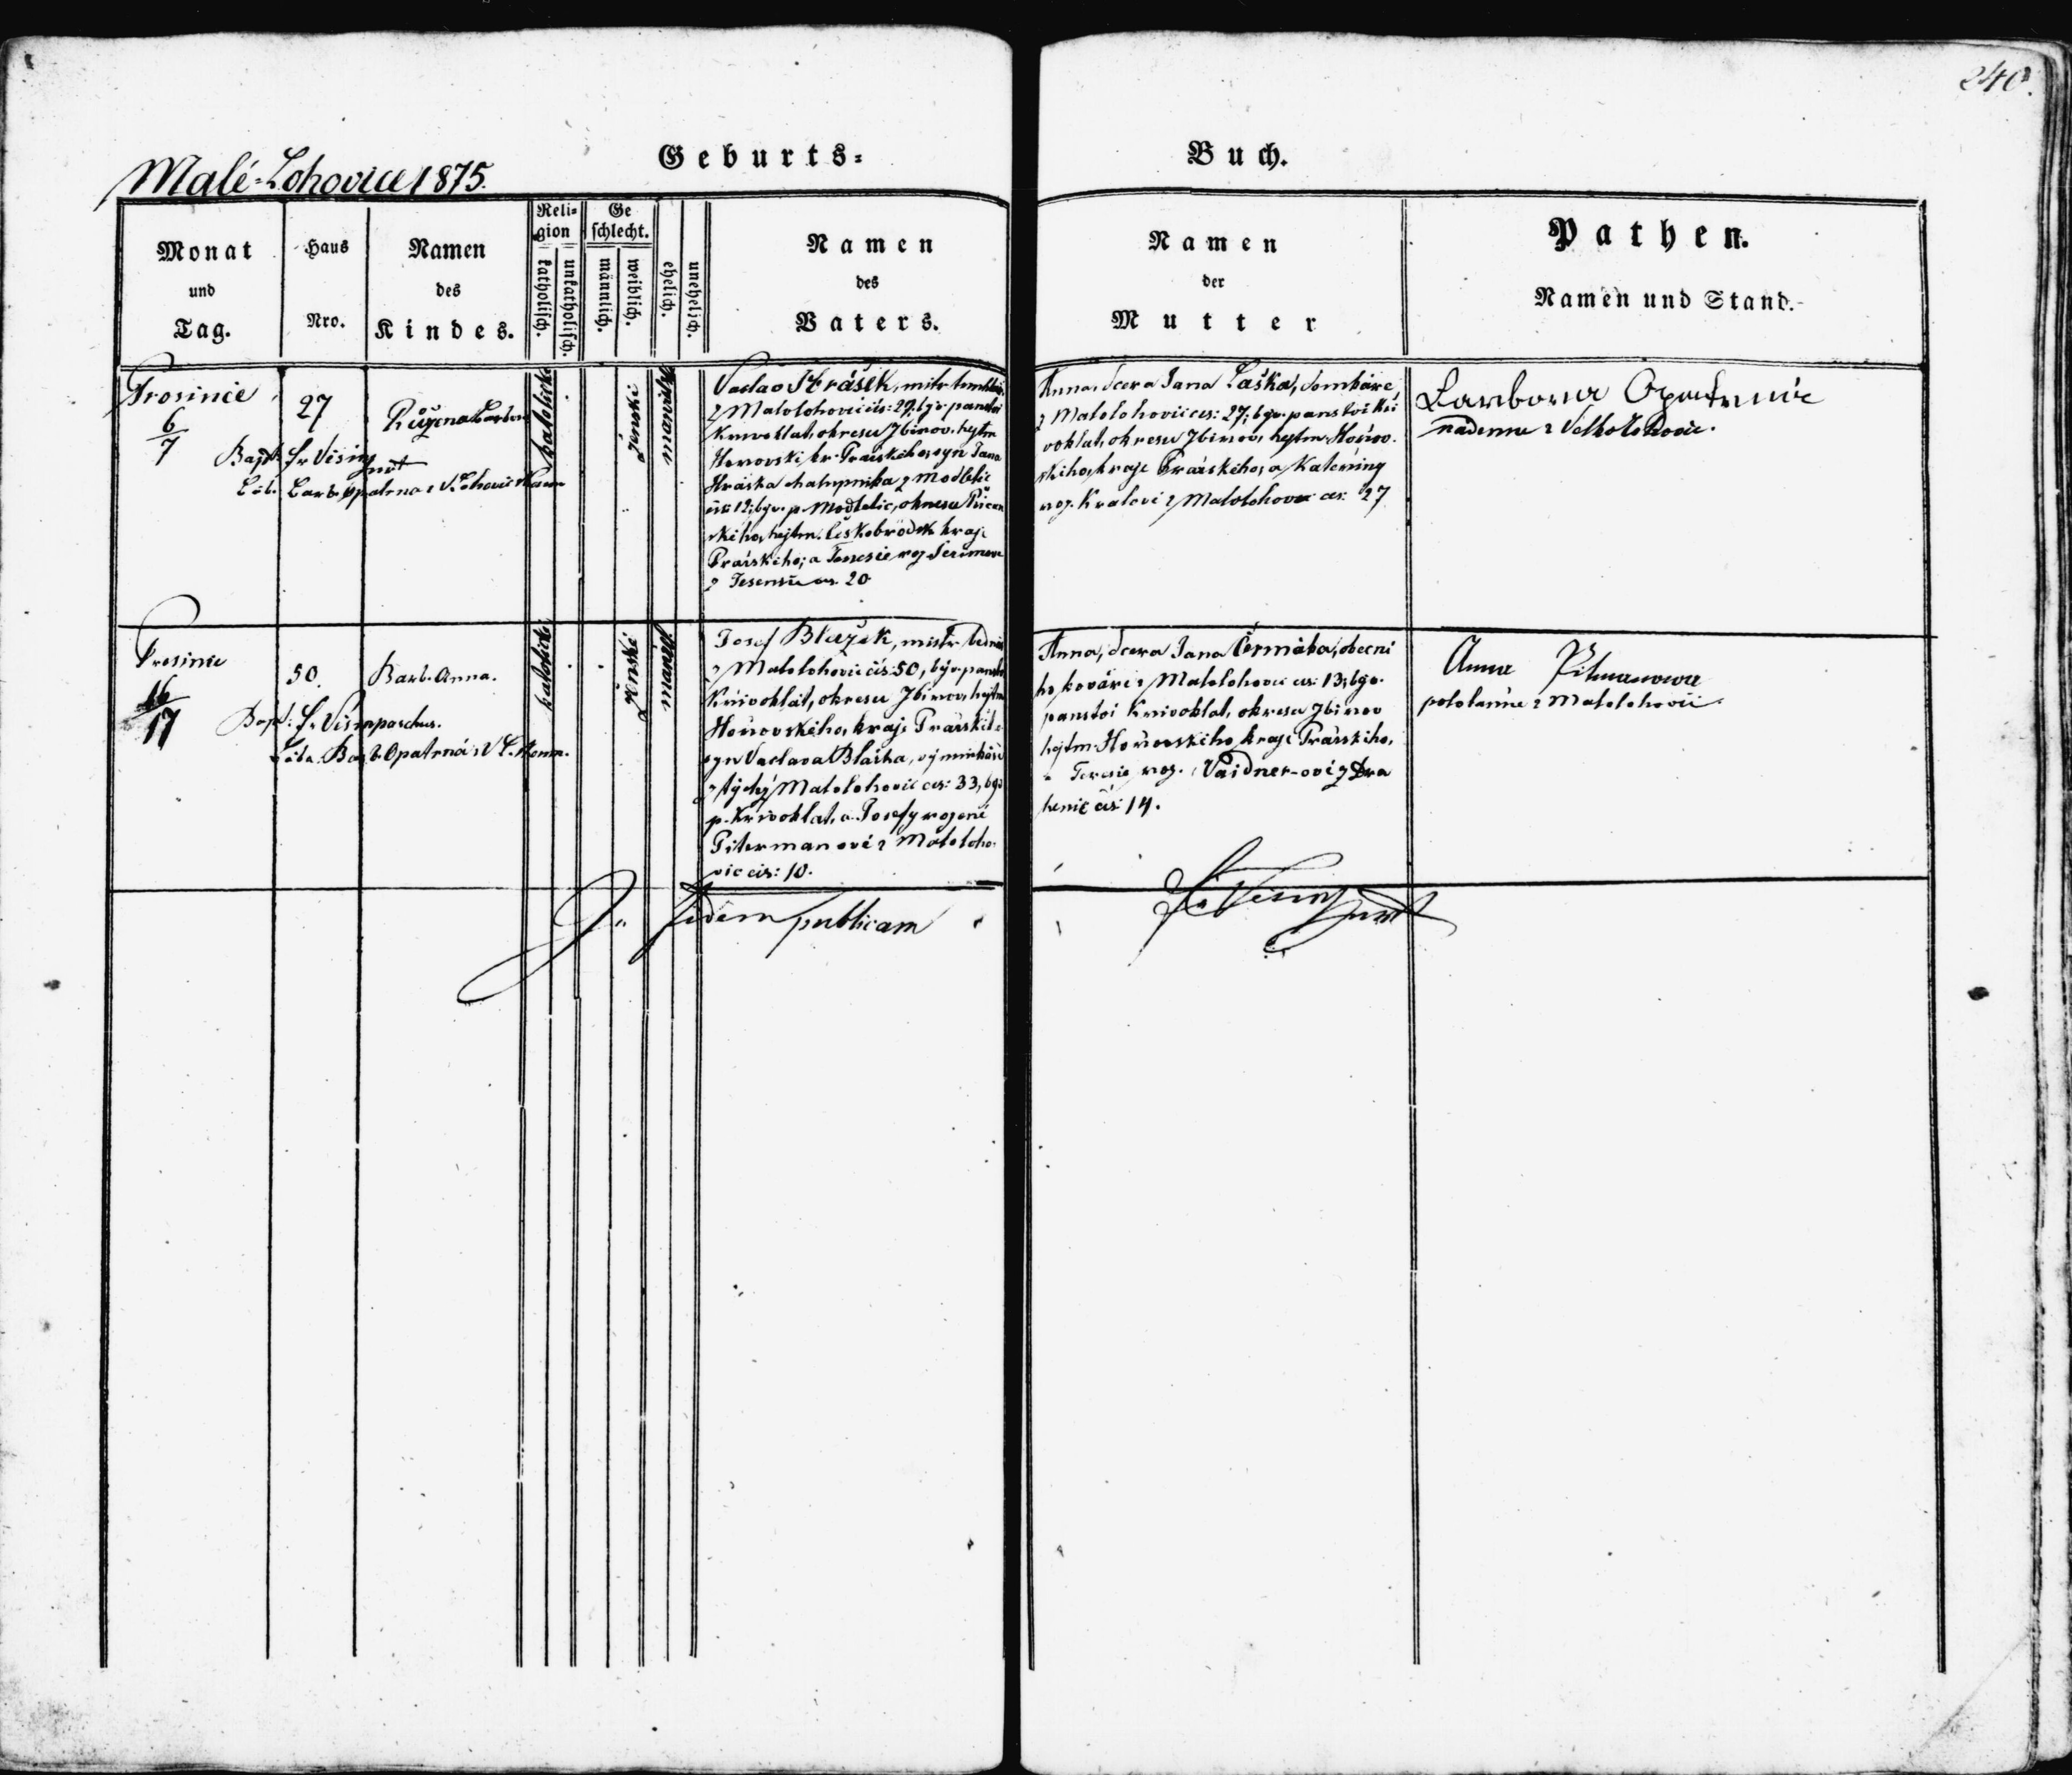 240.
Geburts= Buch.
Malé-Lohovice 1875.
Monat und Tag.
Haus Nro.
Namen des Kindes.
Religion
katholisch.
unkatholisch.
Geschlecht.
männlich.
weiblich.
ehelich.
unehelich.
Namen des Vaters.
Namen der Mutter
Pathen.
Namen und Stand.
Prosinec
6
7
27
Růžena Barbora
Bapt. fr Višin
Báb. Barb. Opatrna z V. Lohovic
katolické
ženské
Václav Hrášek, mistr
z Malolohovic čis: 27, býv. panství
Křivoklat, okresu Zbirov, hejtm
Hořovski kr. Pražského, syn Jana
Hráška chalupnika z Modletic
čis: 12, býv. p. Modletic, okresu Řičan
ského, hejtm. Českobrodsk kraje
Pražského, a Teresie roz
z Jesenice čis. 20
Anna, dcera Jana Laška, domkáře
z Malolohovic čis: 27, býv. panství Kři
voklat, okresu Zbirov, hejtm. Hořov.
ského, kraje Pražského, a Kateřiny
roz. Kralové z Malolohovic čis: 27
Barbora Opatrná
z Velkolohovic.
Prosinec
16
17
50.
Barb. Anna.
Bapt: fr Višin parochus.
Bába. Barb. Opatrná z V. L.
katolické
ženské
Josef Blažek, mistr
z Malolohovic čis: 50, býv. panství
Křivoklát, okresu Zbirov, hejtm
Hořovského, kraje Pražské
syn Václava Blažka, výminkáře
z týchž Malolohovic čis: 33, býv
p. Křivoklat, a Josefy rozené
Pitermanové z Maloloho-
vic čis: 10.
Anna, dcera Jana Čermáka, obecní
ho kováře z Malolohovic čis: 13, býv.
panství Křivoklat, okresu Zbirov
hejtm. Hořovského, kraje Pražského,
a Teresie roz. Vaidner-ové z Dra
henic čis: 14.
Anna
pololánnice z Malolohovic
In fidem publicam